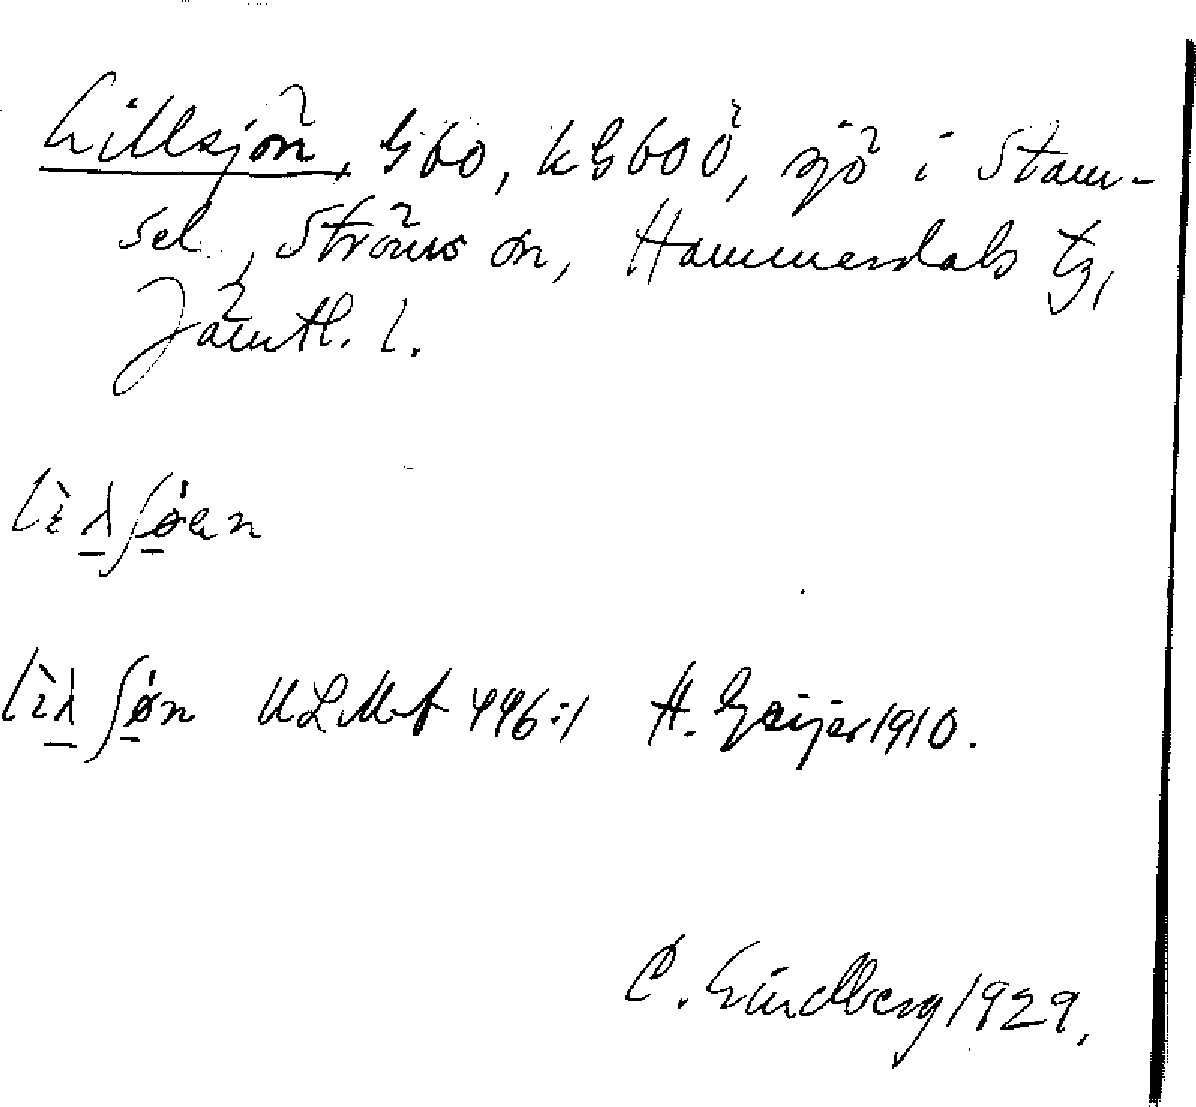 Lillsjön, G60, kG60Ö, sjö i Stam-
sel, Ströms sn, Hammerdals tg,
Jämtl. l.
lìλʃǿen
lìλʃǿn ULMA 446:1 H. Geijer 1910.
C. Lindberg 1929.